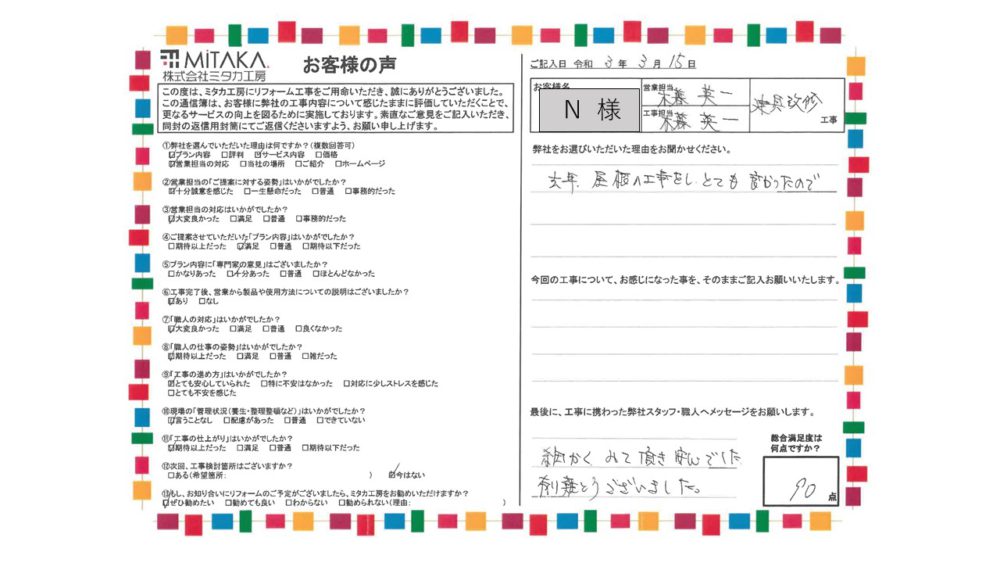 MiTAKA
株式会社ミタカ工房
お客様の声
この度は、ミタカ工房にリフォーム工事をご用命いただき、誠にありがとうございました。
この通信簿は、お客様に弊社の工事内容について感じたままに評価していただくことで、
更なるサービスの向上を図るために実施しております。素直なご意見をご記入いただき、
同封の返信用封筒にてご返信くださいますよう、お願い申し上げます。
①弊社を選んでいただいた理由は何ですか?(複数回答可)
☑プラン内容 ☐評判 ☑サービス内容 ☐価格
☑営業担当の対応 ☐当社の場所 ☐ご紹介 ☐ホームページ
②営業担当の「ご提案に対する姿勢」はいかがでしたか?
☑十分誠意を感じた ☐一生懸命だった ☐普通 ☐事務的だった
③営業担当の対応はいかがでしたか?
☑大変良かった ☐満足 ☐普通 ☐事務的だった
④ご提案させていただいた「プラン内容」はいかがでしたか?
☐期待以上だった ☑満足 ☐普通 ☐期待以下だった
⑤プラン内容に「専門家の意見」はございましたか?
☐かなりあった ☑十分あった ☐普通 ☐ほとんどなかった
⑥工事完了後、営業から製品や使用方法についての説明はございましたか?
☑あり ☐なし
⑦「職人の対応」はいかがでしたか?
☑大変良かった ☐満足 ☐普通 ☐良くなかった
⑧「職人の仕事の姿勢」はいかがでしたか?
☑期待以上だった ☐満足 ☐普通 ☐雑だった
⑨「工事の進め方」はいかがでしたか?
☑とても安心していられた ☐特に不安はなかった ☐対応に少しストレスを感じた
☐とても不安を感じた
⑩現場の「管理状況(養生・整理整頓など)」はいかがでしたか?
☑言うことなし ☐配慮があった ☐普通 ☐できていない
⑪「工事の仕上がり」はいかがでしたか?
☑期待以上だった ☐満足 ☐普通 ☐期待以下だった
⑫次回、工事検討箇所はございますか?
☐ある(希望箇所: ) ☑今はない
⑬もし、お知り合いにリフォームのご予定がございましたら、ミタカ工房をお勧めいただけますか?
☑ぜひ勧めたい ☐勧めても良い ☐わからない ☐勧められない(理由: )
ご記入日 令和 3 年 3 月 15 日
お客様名
N 様
営業担当
英一
工事担当
英一
建具改修
工事
弊社をお選びいただいた理由をお聞かせください。
工事をし、とても良かったので
今回の工事について、お感じになった事を、そのままご記入お願いいたします。
最後に、工事に携わった弊社スタッフ・職人へメッセージをお願いします。
細かく みて頂き
有難とうございました。
総合満足度は
何点ですか?
90 点